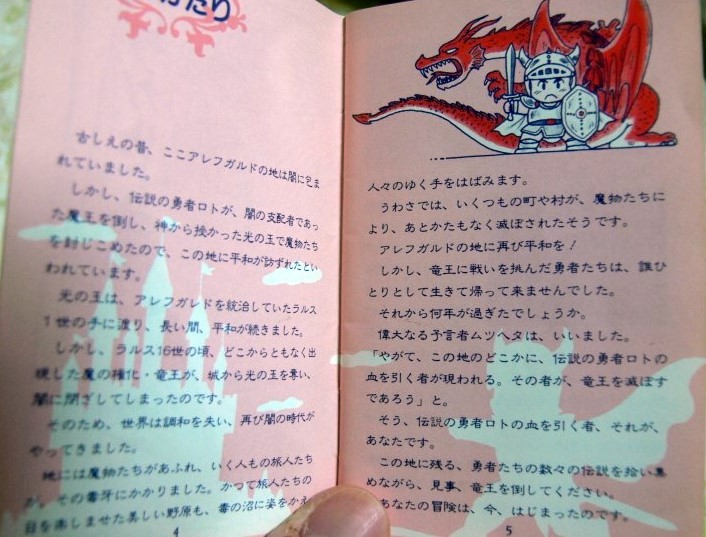 たり
古しえの昔、ここアレフガルドの地は闇に包ま
れていました。
しかし、伝説の勇者ロトが、闇の支配者であっ
た魔王を倒し、神から授かった光の玉で魔物たち
を封じこめたので、この地に平和が訪ずれたとい
われています。
光の玉は、アレフガルドを統治していたラルス
1世の手に渡り、長い間、平和が続きました。
しかし、ラルス16世の頃、どこからともなく出
現した魔の権化・竜王が、城から光の玉を奪い、
闇に閉ざしてしまったのです。
そのため、世界は調和を失い、再び闇の時代が
やってきました。
地には魔物たちがあふれ、いく人もの旅人たち
が、その毒牙にかかりました。かつて旅人たちの
目を楽しませた美しい野原も、毒の沼に姿をかえ
4
人々のゆく手をはばみます。
うわさでは、いくつもの町や村が、魔物たちに
より、あとかたもなく滅ぼされたそうです。
アレフガルドの地に再び平和を!
しかし、竜王に戦いを挑んだ勇者たちは、誰ひ
とりとして生きて帰って来ませんでした。
それから何年が過ぎたでしょうか。
偉大なる予言者ムツヘタは、いいました。
「やがて、この地のどこかに、伝説の勇者ロトの
血を引く者が現われる。その者が、竜王を滅ぼす
であろう」と。
そう、伝説の勇者ロトの血を引く者、それが、
あなたです。
この地に残る、勇者たちの数々の伝説を拾い集
めながら、見事、竜王を倒してください。
あなたの冒険は、今、はじまったのです。
5